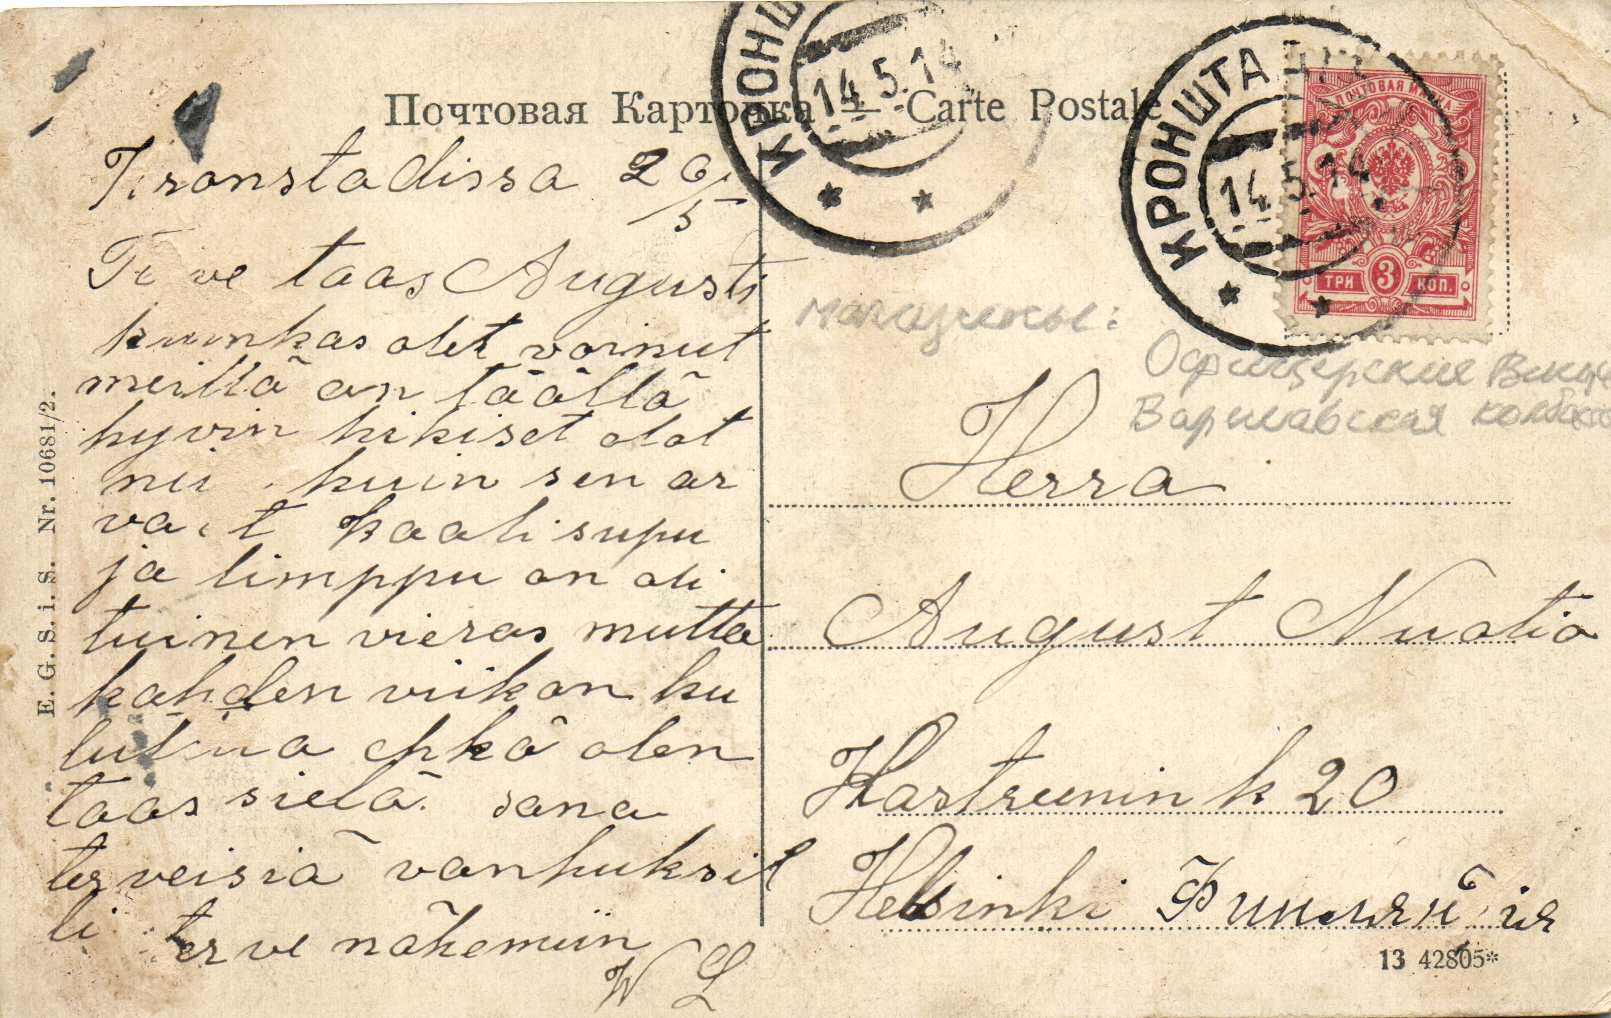 Почтовая Карточка — Carte Postale
КРОНШ
14.5.14
КРОНШТА
14.5.14
ПОЧТОВАЯ МАРКА
ТРИ 3 КОП.
Kronstadissa 26/5
Terve taas Augusti
kuinkas olet voinut
meillä on täällä
hyvin hikiset olot
nii kuin sen ar
vaat kaali supu
ja limppu on oli
tuinen vieras mutta
kahden viikon ku
luttua ehkä olen
taas sielä. sana
terveisiä vanhuksil
li terve näkemiin
W L
магазины:
Офицерские
Варшавская
Herra
August Nuotio
k 20
Helsinki Финляндія
E. G. S. i. S. Nr. 10681/2.
13 42805*